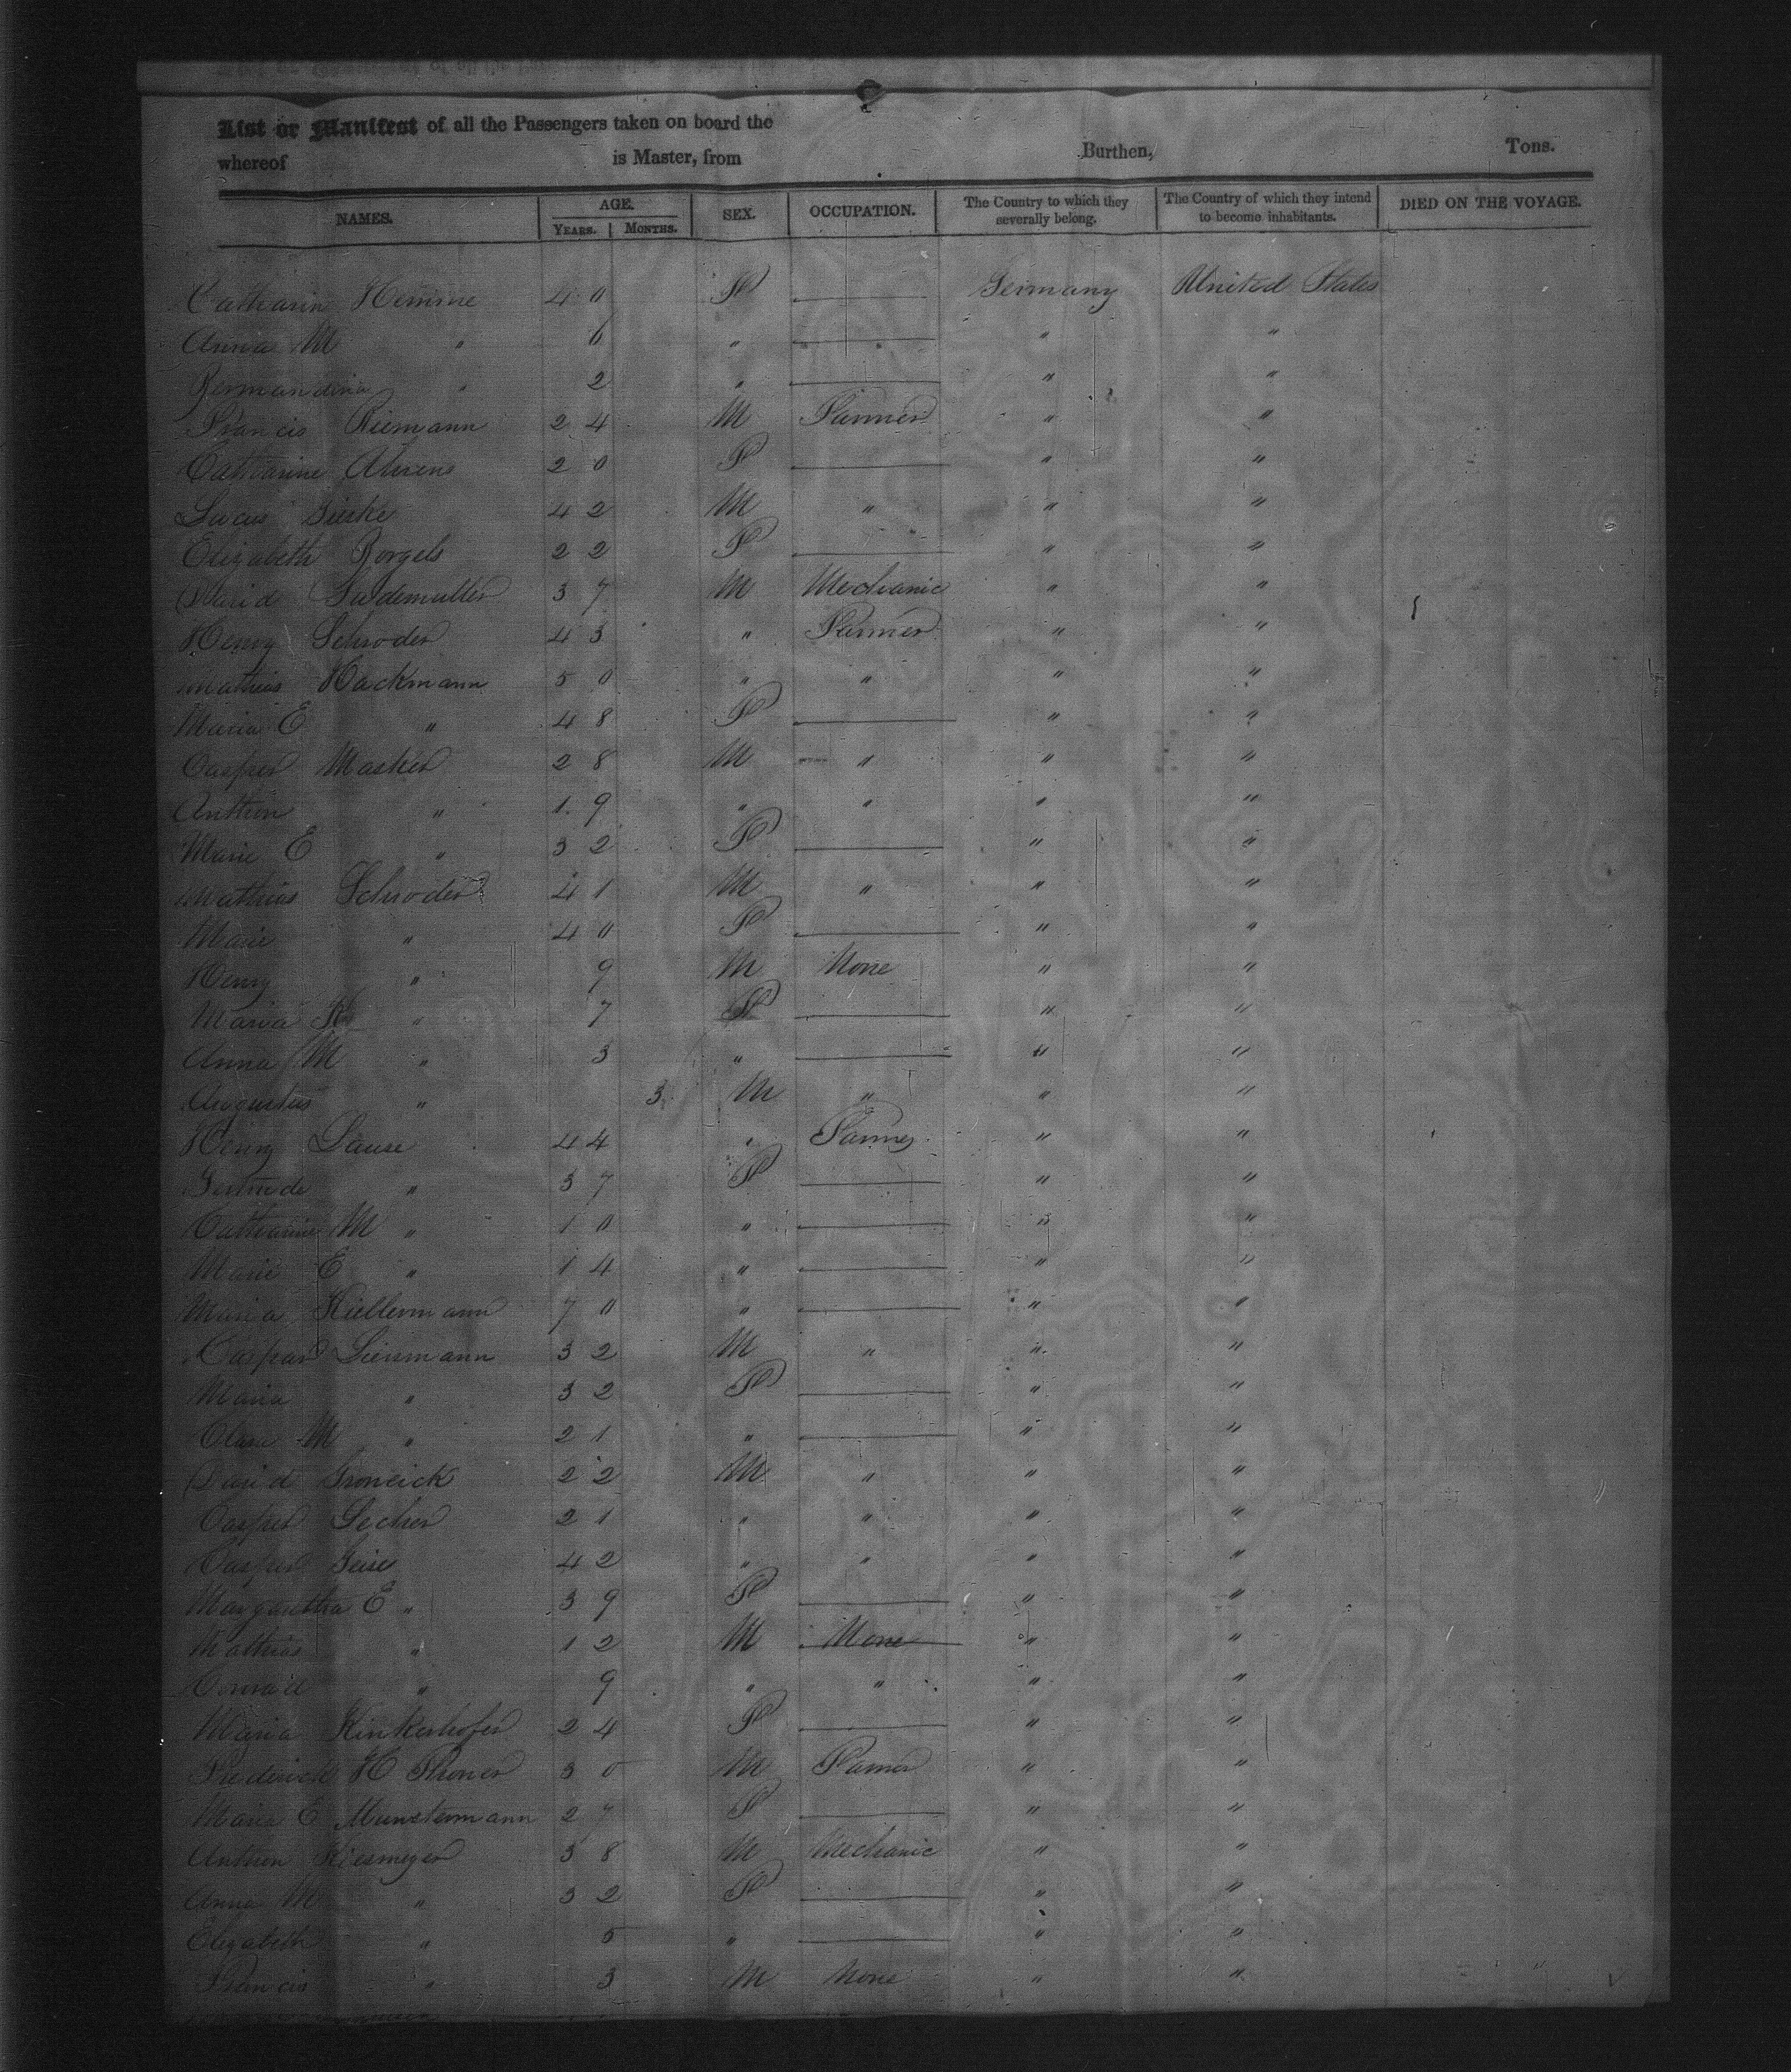 List or Manifest of all the Passengers taken on board the
whereof is Master, from Burthen, Tons.
NAMES. AGE. YEARS. MONTHS. SEX. OCCUPATION. The Country to which they severally belong. The Country of which they intend to become inhabitants. DIED ON THE VOYAGE.
Catharin Hemme 40 F — Germany United States
Anna M " 6 " — " "
2 " — " "
Francis Riemann 24 M Farmer " "
Catharine Ahrens 20 F — " "
Lucas 42 M " " "
Elizabeth Borgels 22 F — " "
David 37 M Mechanic " "
Henry Schroder 43 " Farmer " "
Mathias Hackmann 50 " " " "
Maria E " 48 F — " "
Casper Masker 28 M " " "
Anthon " 19 " " " "
Marie E " 32 F — " "
Mathias Schroder 41 M " " "
Marie " 40 F — " "
Henry " 9 M None " "
Maria " 7 F — " "
Anna M " 3 " — " "
Augustus " 3 M " " "
Henry Lause 44 " Farmer " "
Gertrude " 37 F — " "
Catharine M " 10 " — " "
Marie E " 14 " — " "
Maria Kellermann 70 " — " "
Caspar Liermann 32 M " " "
Maria " 32 F — " "
Clara M " 21 " — " "
David Groneick 22 M " " "
Casper Lecher 21 " " " "
Casper Geise 42 " " " "
Margaretha E " 39 F — " "
Mathias " 12 M None " "
Conrad " 9 " " " "
Maria Kinkerhofer 24 F — " "
Frederick H 30 M Farmer " "
Maria E Munstermann 27 F — " "
Anthon Kiesmeyer 38 M Mechanic " "
Anna M " 32 F — " "
Elizabeth " 5 " — " "
Francis " 3 M None " "